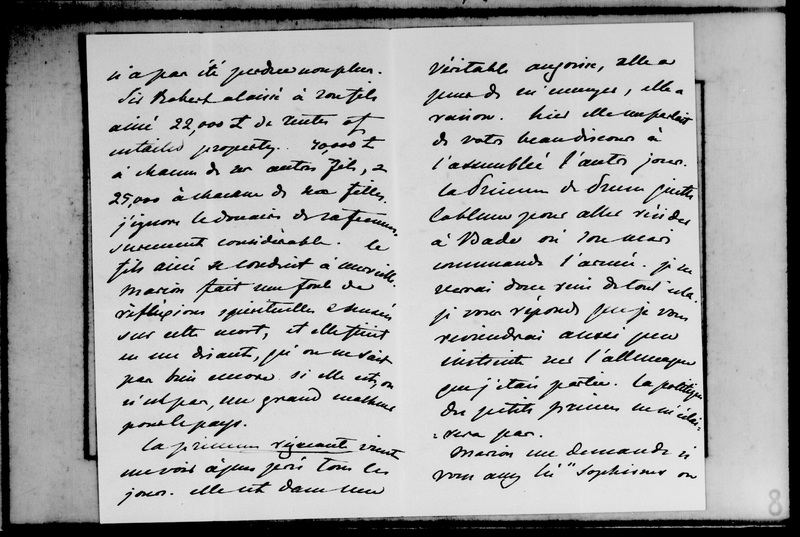 n'a pas été perdue non plus.
Sir Robert a laissé à son fils
ainé 22,000 £ de rentes of
entailed property. 40,000 £
à chacun de ses autres fils, &
25,000 à chacune de ses filles.
j'ignore le douaire de sa femme,
surement considérable. le
fils ainé se conduit à merveille.
Marion fait une foule de
réflexions spirituelles & sensées
sur cette mort, et elle finit
en me disant, qu'on ne sait
pas bien encore si elle est, ou
n'est pas, un grand malheur
pour le pays.
La princesse régnante vient
me voir à peu près tous les
jours. elle est dans une
véritable angoisse, elle a
peur de m'ennuyer, elle a
raison. hier elle me parlait
de votre beau discours à
l'assemblée l'autre jour.
la Princesse de Prusse quitte
Coblence pour aller résider
à Bade où son mari
commande l'armée. je ne
verrai donc rien de tout cela.
je vous réponds que je vous
reviendrai aussi peu
instruite sur l'allemagne
que j'étais partie. la politique
des petits princes ne m'éclai-
-rera pas.
Marion me demande si
vous avez lu "Sophismes ou
8